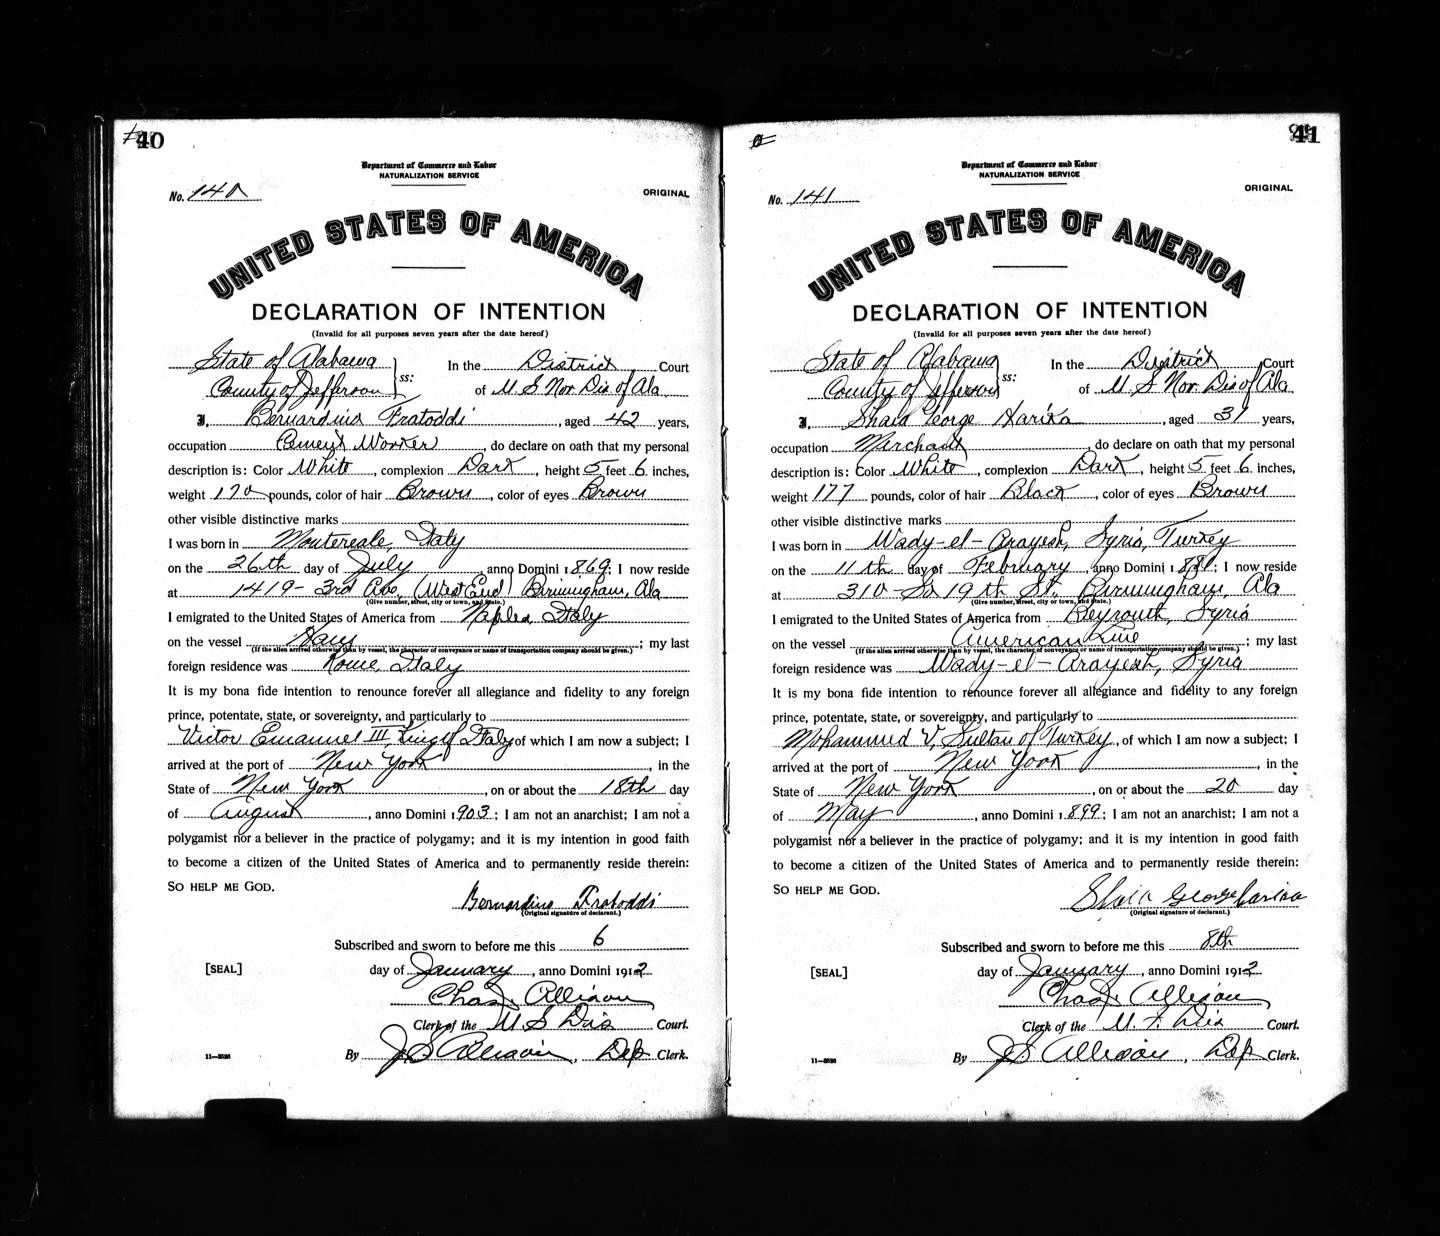 40
Department of Commerce and Labor
NATURALIZATION SERVICE
No. 140
ORIGINAL
UNITED STATES OF AMERICA
DECLARATION OF INTENTION
(Invalid for all purposes seven years after the date hereof)
State of Alabama } ss: In the District Court
County of Jefferson of U S Nor. Dis of Ala
I, Bernardino Fratoddi, aged 42 years,
occupation Cement Worker, do declare on oath that my personal
description is: Color White, complexion Dark, height 5 feet 6 inches,
weight 170 pounds, color of hair Brown, color of eyes Brown
other visible distinctive marks
I was born in Montereale, Italy
on the 26th day of July, anno Domini 1869; I now reside
at 1419- 3rd Ave, (West End) Birmingham, Ala
(Give number, street, city or town, and State.)
I emigrated to the United States of America from Naples, Italy
on the vessel; my last
(If the alien arrived otherwise than by vessel, the character of conveyance or name of transportation company should be given.)
foreign residence was Rome, Italy
It is my bona fide intention to renounce forever all allegiance and fidelity to any foreign
prince, potentate, state, or sovereignty, and particularly to
Victor Emanuel III, King of Italy of which I am now a subject; I
arrived at the port of New York, in the
State of New York, on or about the 18th day
of August, anno Domini 1903; I am not an anarchist; I am not a
polygamist nor a believer in the practice of polygamy; and it is my intention in good faith
to become a citizen of the United States of America and to permanently reside therein:
SO HELP ME GOD.
Bernardino Fratoddi
(Original signature of declarant.)
Subscribed and sworn to before me this 6
[SEAL] day of January, anno Domini 1912
Chas J. Allison
Clerk of the U S Dis Court.
11-2526 By J S Allison, Dep Clerk.
41
Department of Commerce and Labor
NATURALIZATION SERVICE
No. 141
ORIGINAL
UNITED STATES OF AMERICA
DECLARATION OF INTENTION
(Invalid for all purposes seven years after the date hereof)
State of Alabama } ss: In the District Court
County of Jefferson of U S Nor. Dis of Ala
I, George, aged 31 years,
occupation Merchant, do declare on oath that my personal
description is: Color White, complexion Dark, height 5 feet 6 inches,
weight 177 pounds, color of hair Black, color of eyes Brown
other visible distinctive marks
I was born in Wady-el-Arayesh, Syria, Turkey
on the 11th day of February, anno Domini 1881; I now reside
at 310- So 19th St., Birmingham, Ala
(Give number, street, city or town, and State.)
I emigrated to the United States of America from Beyrouth, Syria
on the vessel American Line; my last
(If the alien arrived otherwise than by vessel, the character of conveyance or name of transportation company should be given.)
foreign residence was Wady-el-Arayesh, Syria
It is my bona fide intention to renounce forever all allegiance and fidelity to any foreign
prince, potentate, state, or sovereignty, and particularly to
Mohammed V, Sultan of Turkey, of which I am now a subject; I
arrived at the port of New York, in the
State of New York, on or about the 20 day
of May, anno Domini 1899; I am not an anarchist; I am not a
polygamist nor a believer in the practice of polygamy; and it is my intention in good faith
to become a citizen of the United States of America and to permanently reside therein:
SO HELP ME GOD.
George
(Original signature of declarant.)
Subscribed and sworn to before me this 8th
[SEAL] day of January, anno Domini 1912
Chas J. Allison
Clerk of the U. S. Dis Court.
11-2526 By J S Allison, Dep Clerk.